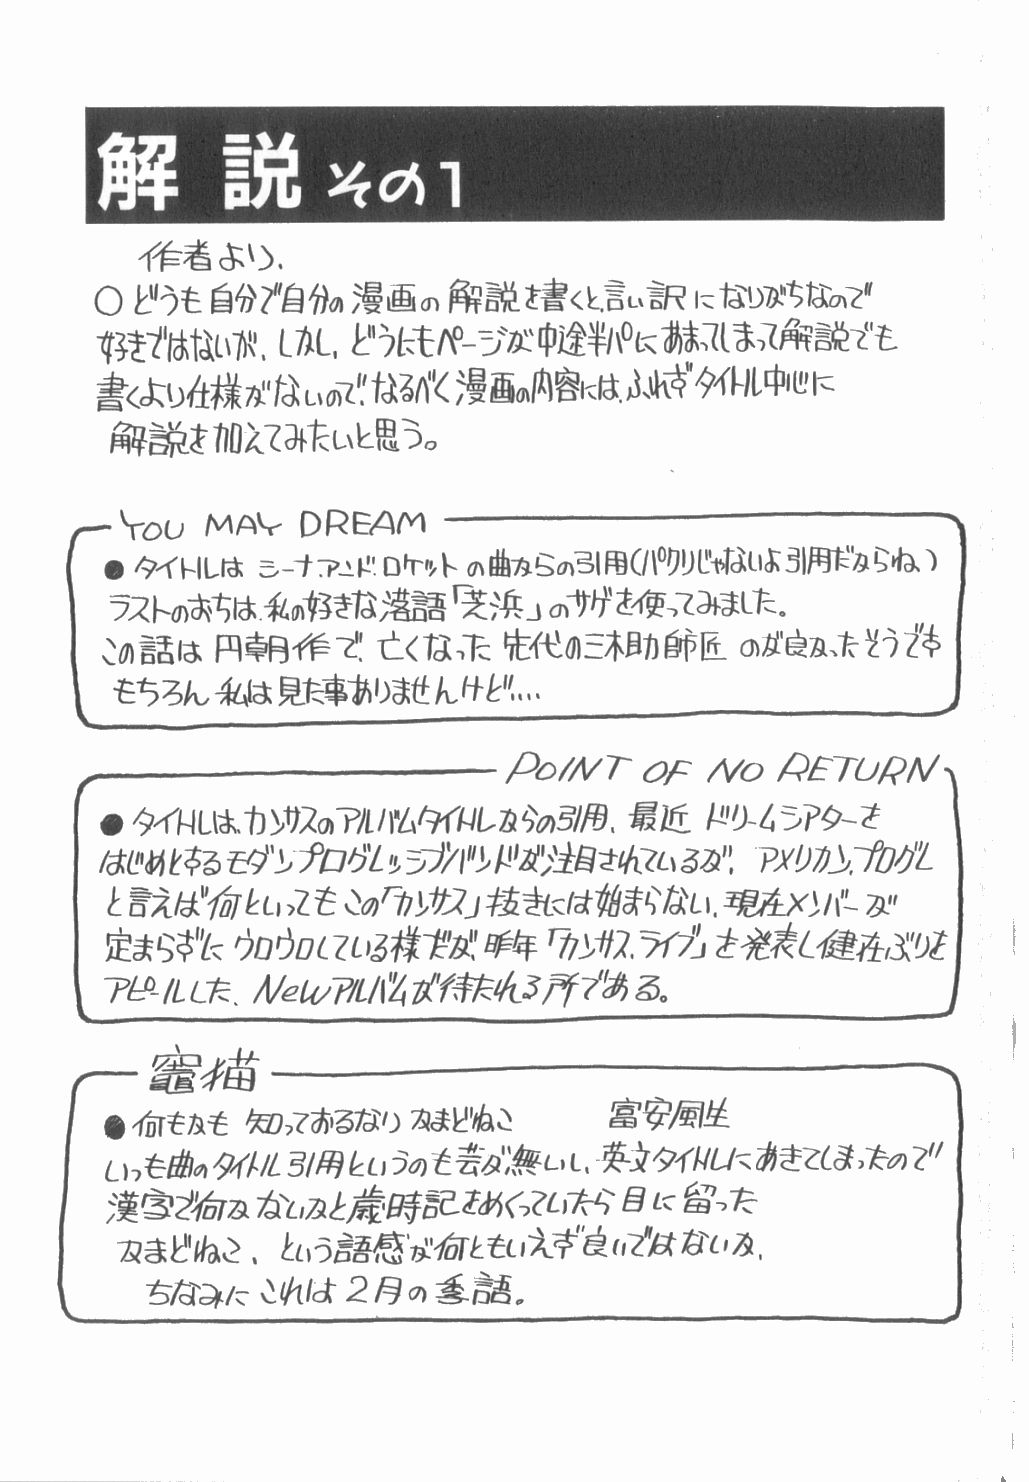 解説 その1
作者より、
○どうも自分で自分の漫画の解説を書くと、言い訳になりがちなので
好きではないが、しかし、どうにもページが中途半パにあまってしまって解説でも
書くより仕様がないので、なるべく漫画の内容には、ふれずタイトル中心に
解説を加えてみたいと思う。
YOU MAY DREAM
●タイトルは シーナ・アンド・ロケット の曲からの引用(パクリじゃないよ引用だからね)
ラストのおちは、私の好きな落語「芝浜」のサゲを使ってみました。
この話は 円朝作で、亡くなった 先代の三木助師匠 のが良かったそうです
もちろん 私は見た事ありませんけど....
POINT OF NO RETURN
●タイトルは、カンサスのアルバムタイトルからの引用、最近 ドリームシアターを
はじめとするモダンプログレッシブバンドが注目されているが、アメリカン、プログレ
と言えば何といってもこの「カンサス」抜きには始まらない、現在メンバーが
定まらずにウロウロしている様だが、昨年「カンサス、ライブ」を発表し健在ぶりを
アピールした、NeWアルバムが待たれる所である。
竈猫
●何もかも 知っておるなり かまどねこ 富安風生
いつも曲のタイトル引用というのも芸が無いし、英文タイトルにあきてしまったので
漢字で何か ないかと歳時記をめくっていたら目に留った
かまどねこ、という語感が何ともいえず良いではないか、
ちなみに これは2月の季語。